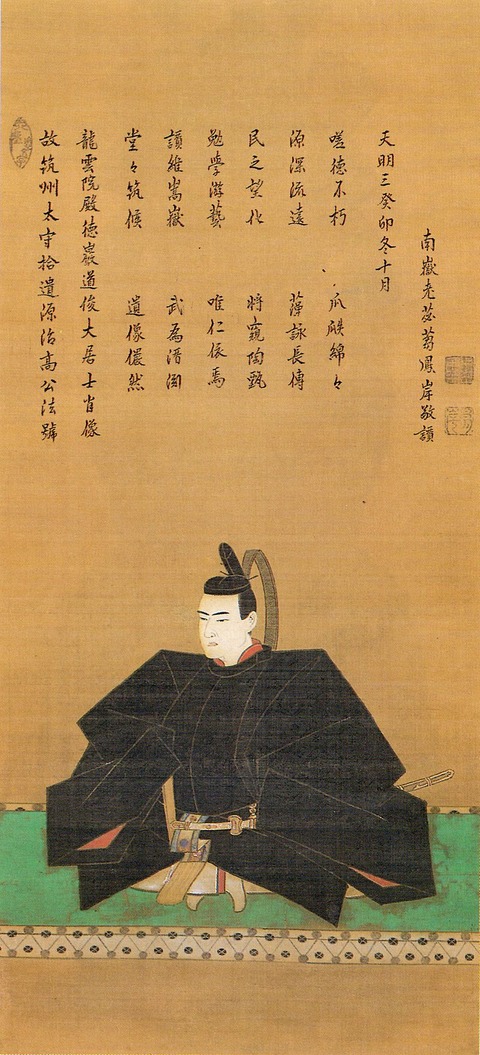 故筑州太守拾遺源治高公法號
龍雲院殿德巖道俊大居士肖像
堂々筑候 遺像儼然
維嵩嶽 武為
勉學游藝 唯仁依焉
民之望化 將窺陶甄
源深流遠 藻詠長傳
嗟德不朽 瓜瓞綿々
天明三癸卯冬十月
南嶽老苾蒭鳳岸敬讃